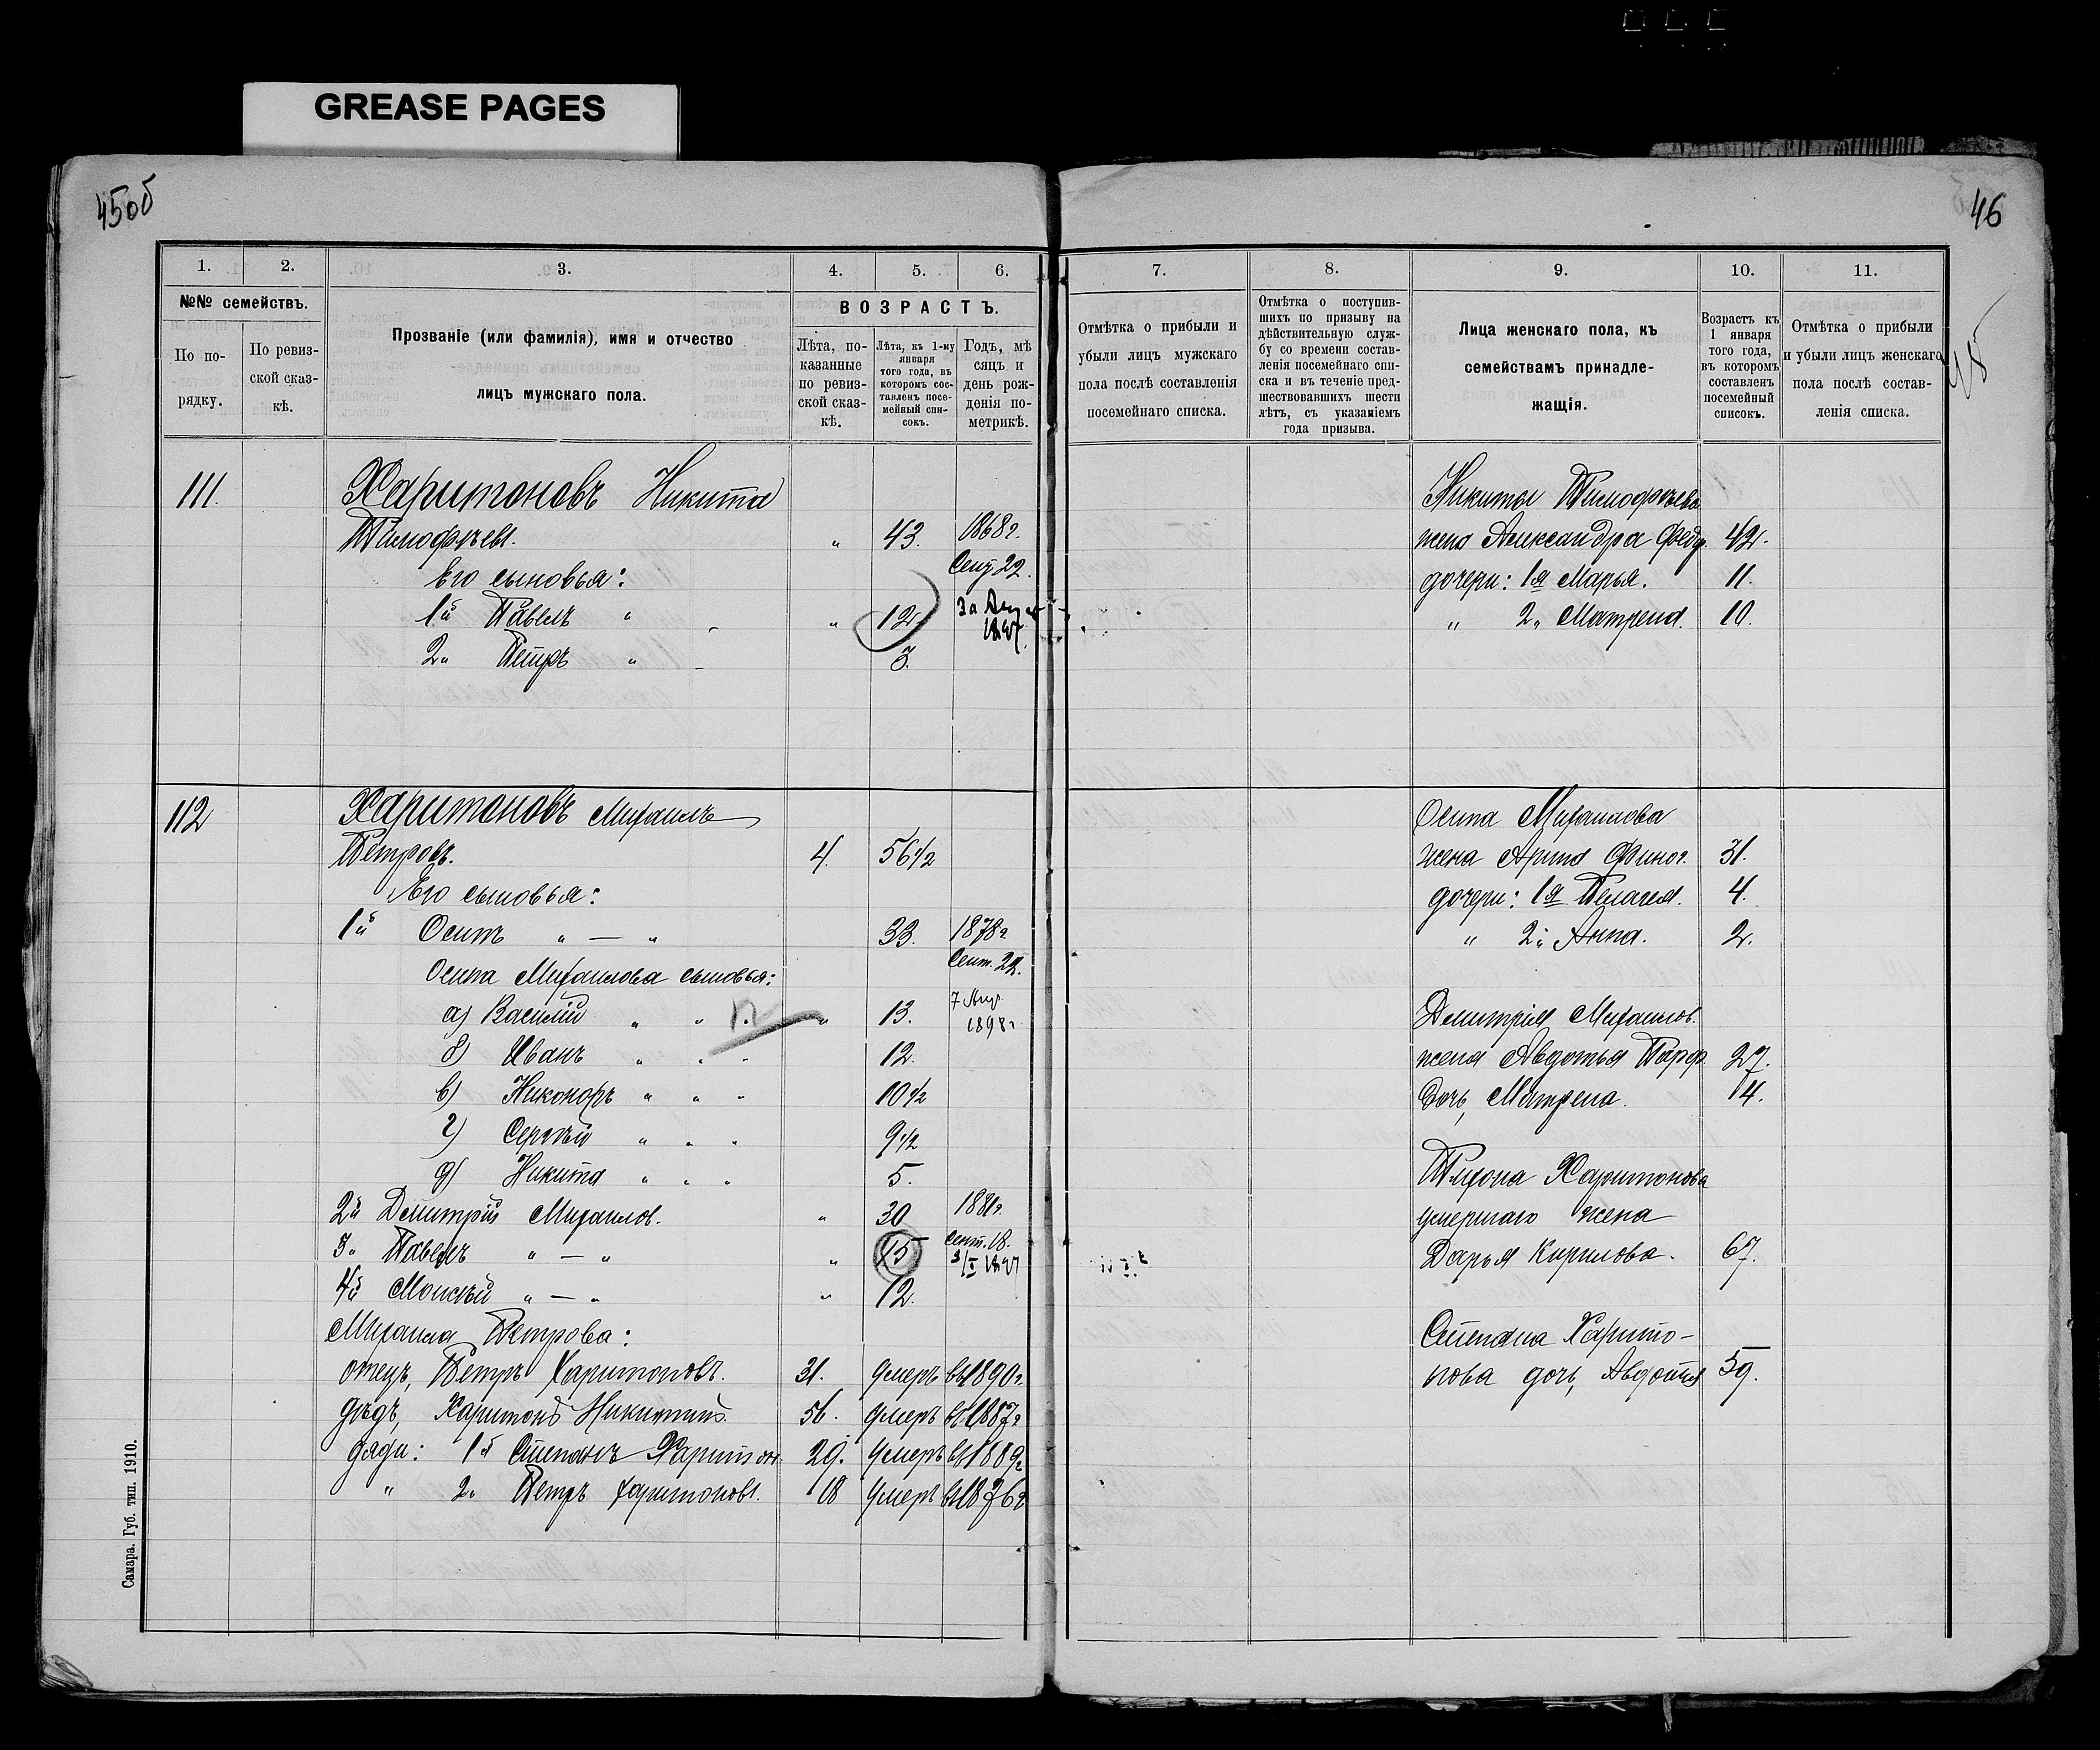 GREASE PAGES
45об
46
1. 2. 3. 4. 5. 6.
№№ семействъ.
По по-
рядку.
По ревиз-
ской сказ-
кѣ.
Прозваніе (или фамилія), имя и отчество
лицъ мужскаго пола.
ВОЗРАСТЪ.
Лѣта, по-
казанные
по ревиз-
ской сказ-
кѣ.
Лѣта, къ 1-му
января
того года, въ
которомъ сос-
тавленъ посе-
мейный спи-
сокъ.
Годъ, мѣ
сяцъ и
день рож-
денія по-
метрикѣ.
111. Харитоновъ Никита
Тимофѣевъ. " 43. 1868г.
Сент 22.
Его сыновья:
1й Павелъ " " 12. 30 Авг
1897
2" Петръ " 3.
112 Харитоновъ Михаилъ
Петровъ. 4. 56 1/2
Его сыновья:
1й Осипъ " — " 33. 1878г
Сент. 22.
Осипа Михаилова сыновья:
а) Василій " " " 13. 7 Апр
1898г
б) Иванъ " " " 12.
в) Никоноръ " " " 10 1/2
г) Сергѣй " " " 9 1/2
д) Никита " " " 5.
2й Дмитрій Михаилов. " 30 1881г.
Сент. 18.
3" Павелъ " — " " 15 3/I 1897
4й Моисѣй " — " " 12.
Михаила Петрова:
отецъ, Петръ Харитоновъ. 31. умеръ въ 1890г.
дѣдъ, Харитонъ Никитинъ 56. умеръ въ 1887г
дяди: 1й Степанъ Харитон. 29. умеръ въ 1889г
" 2" Петръ Харитоновъ. 18 умеръ въ 1876г
Самара. Губ. тип. 1910.
7. 8. 9. 10. 11.
Отмѣтка о прибыли и
убыли лицъ мужскаго
пола послѣ составленія
посемейнаго списка.
Отмѣтка о поступив-
шихъ по призыву на
дѣйствительную служ-
бу со времени состав-
ленія посемейнаго спи-
ска и въ теченіе пред-
шествовавшихъ шести
лѣтъ, съ указаніемъ
года призыва.
Лица женскаго пола, къ
семействамъ принадле-
жащія.
Возрастъ къ
1 января
того года,
въ которомъ
составленъ
посемейный
списокъ.
Отмѣтка о прибыли
и убыли лицъ женскаго
пола послѣ состав-
ленія списка.
Никиты Тимофѣева
жена Александра Федор. 42.
дочери: 1я Марья. 11.
" 2" Матрена. 10.
Осипа Михаилова
жена Арина Финог. 31.
дочери: 1я Пелагея. 4.
" 2" Анна. 2.
Дмитрія Михаилов.
жена Авдотья Парф. 27.
дочь, Матрена. 4.
Тихона Харитонова
умершаго жена
Дарья Кирилова. 67.
Степана Харито-
нова дочь, Авдотья 59.